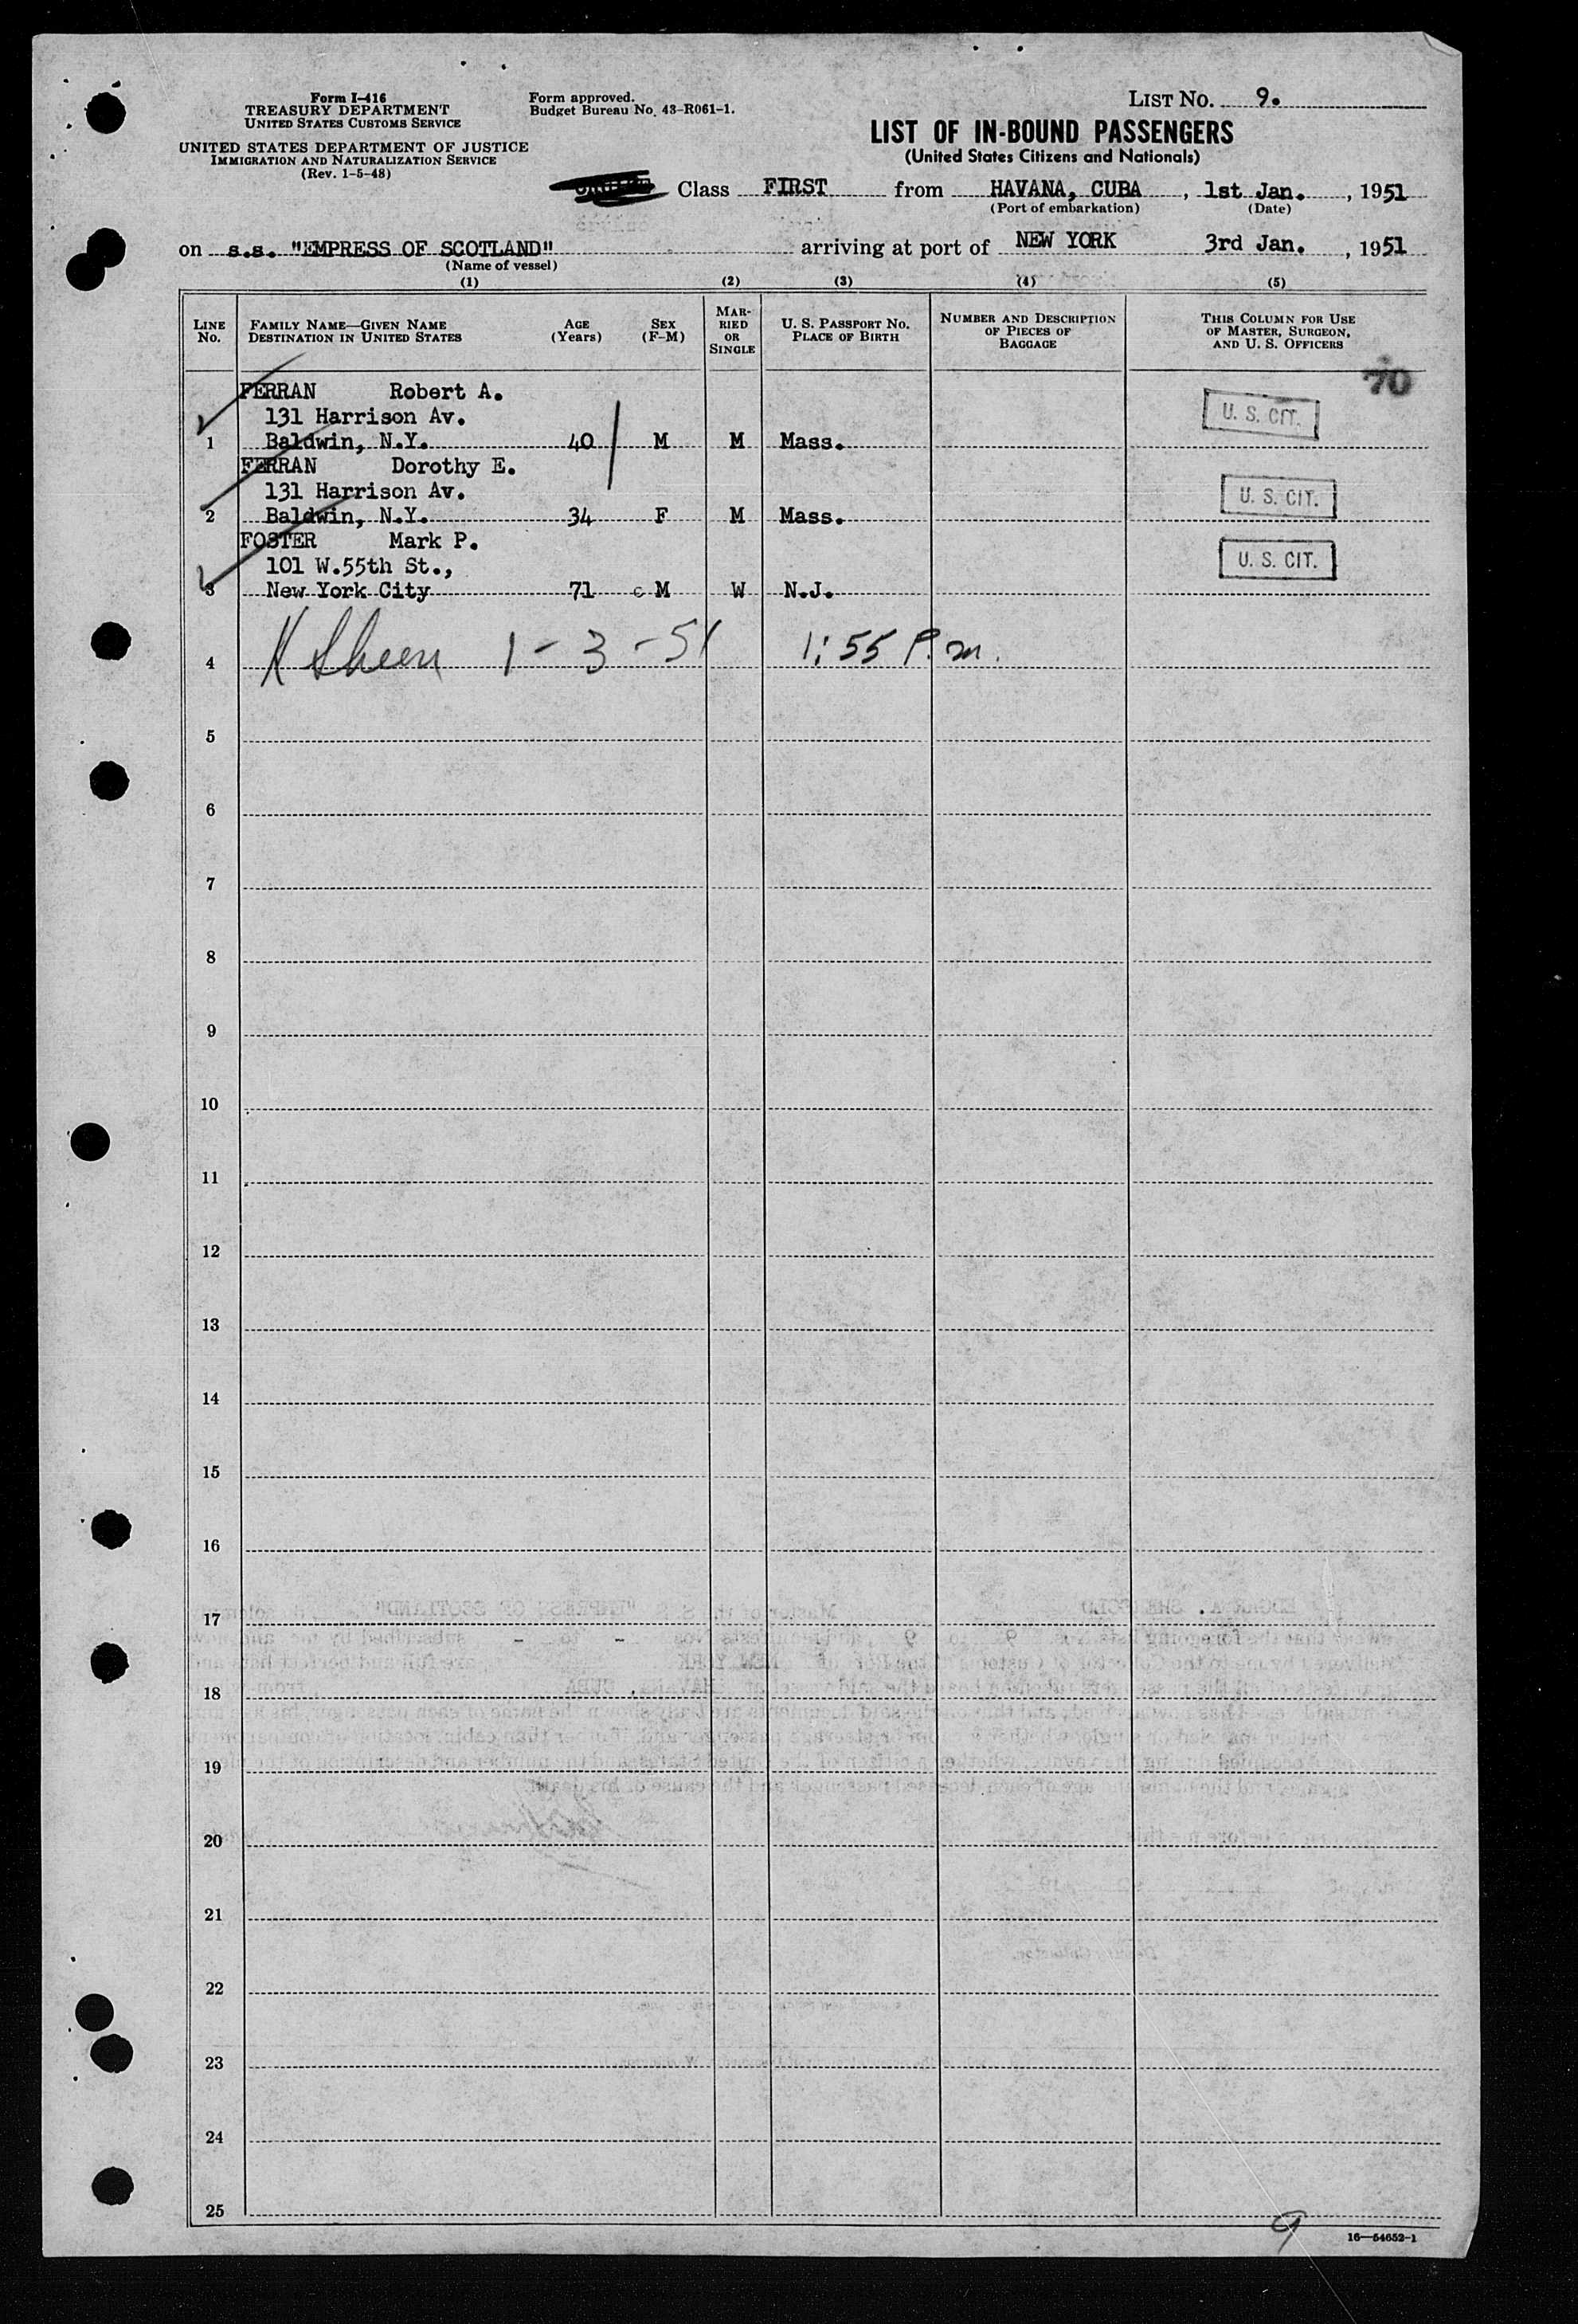 Form I-416
TREASURY DEPARTMENT
UNITED STATES CUSTOMS SERVICE
UNITED STATES DEPARTMENT OF JUSTICE
IMMIGRATION AND NATURALIZATION SERVICE
(Rev. 1-5-48)
Form approved.
Budget Bureau No. 43-R061-1.
LIST NO. 9.
LIST OF IN-BOUND PASSENGERS
(United States Citizens and Nationals)
Class FIRST from HAVANA, CUBA, 1st Jan., 1951
(Port of embarkation) (Date)
on s.s. "EMPRESS OF SCOTLAND" arriving at port of NEW YORK 3rd Jan., 1951
(Name of vessel)
(1) (2) (3) (4) (5)
LINE No. FAMILY NAME—GIVEN NAME DESTINATION IN UNITED STATES AGE (Years) SEX (F-M) MARRIED OR SINGLE U. S. PASSPORT NO. PLACE OF BIRTH NUMBER AND DESCRIPTION OF PIECES OF BAGGAGE THIS COLUMN FOR USE OF MASTER, SURGEON, AND U. S. OFFICERS
70
FERRAN Robert A.
131 Harrison Av. U. S. CIT.
1 Baldwin, N.Y. 40 M M Mass.
FERRAN Dorothy E.
131 Harrison Av. U. S. CIT.
2 Baldwin, N.Y. 34 F M Mass.
FOSTER Mark P.
101 W.55th St., U. S. CIT.
3 New York City 71 c M W N.J.
4 1-3-51 1:55 P.m.
5
6
7
8
9
10
11
12
13
14
15
16
17
18
19
20
21
22
23
24
25
9
16—54652-1